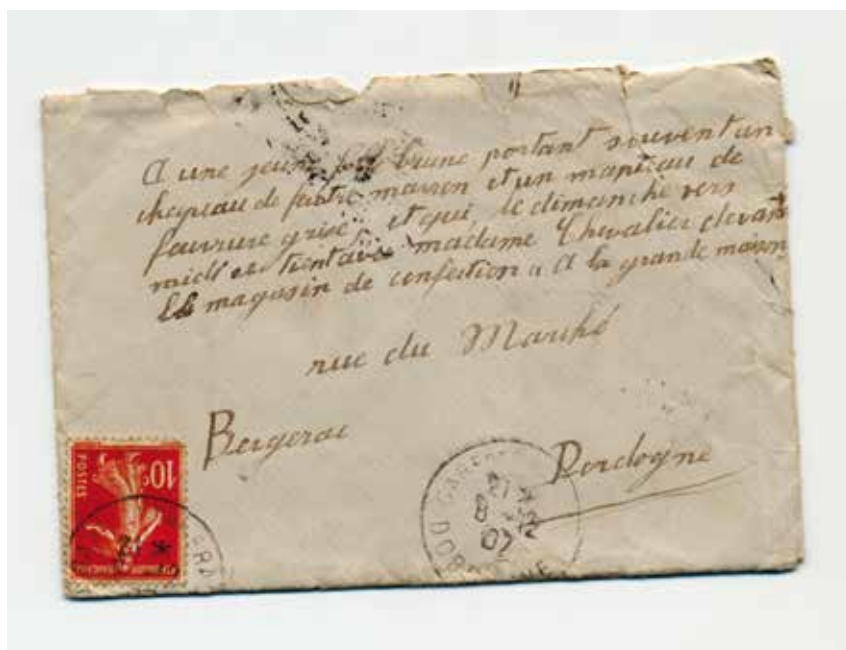 A une jeune fille brune portant souvent un
chapeau de feutre marron et un manteau de
fourrure grise, et qui, le dimanche vers
midi madame Chevalier devant
le magasin de confection "A la grande maison
rue du Marché
Bergerac
Dordogne
10c
POSTES
21
8 -12
07
DORDOGNE